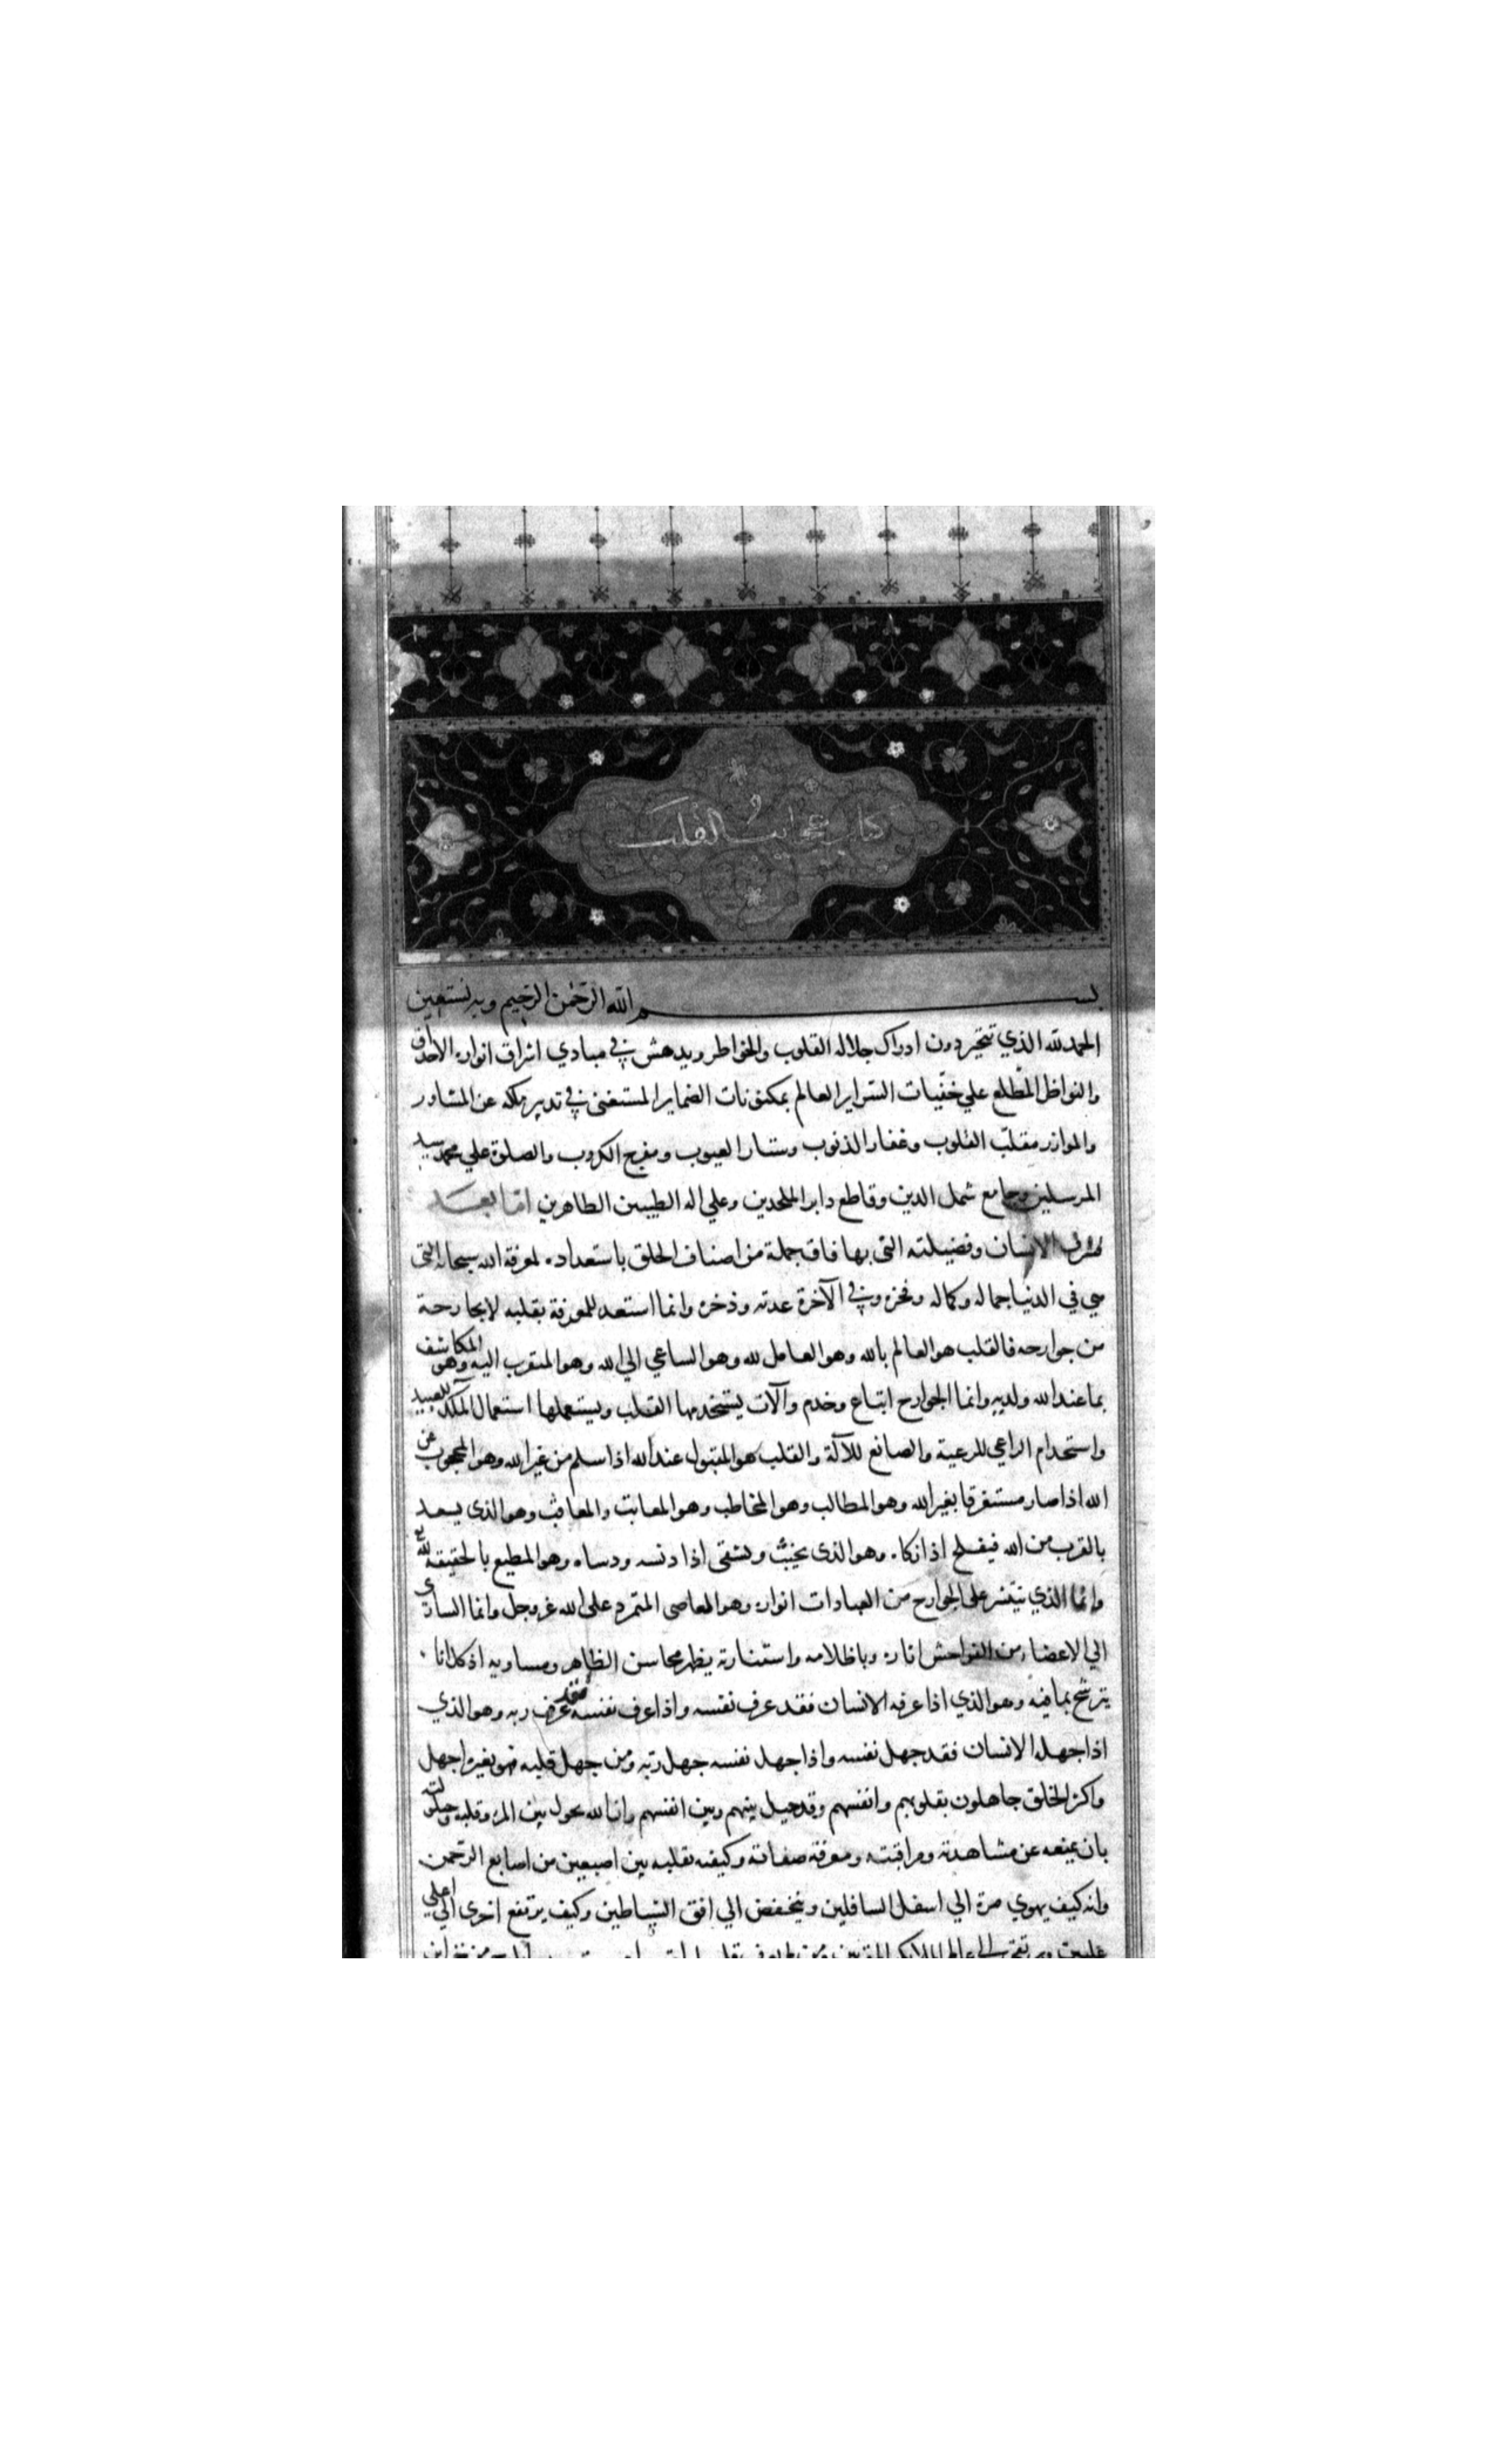 كتاب عجايب القلب
بسم الله الرحمن الرحيم وبه نستعين
الحمد لله الذي تتحير دون ادراك جلاله القلوب والخواطر ويدهش في مبادي اشراق انواره الاحداق
والنواظر المطلع علي خفيات السراير العالم بمكنونات الضماير المستغني في تدبير ملكه عن المشاور
والموازر مقلب القلوب وغفار الذنوب وستار العيوب ومفرج الكروب والصلوة علي محمد سيد
المرسلين وجامع شمل الدين وقاطع دابر الملحدين وعلي اله الطيبين الطاهرين اما بعد
فشرف الانسان وفضيلته التي بها فاق جملة من اصناف الخلق باستعداده لمعرفة الله سبحانه التي
هي في الدنيا جماله وكماله وفخره وفي الآخرة عدته وذخره وانما استعد للمعرفة بقلبه لا بجارحة
من جوارحه فالقلب هو العالم بالله وهو العامل لله وهو الساعي الي الله وهو المتقرب اليه وهو المكاشف
بما عند الله ولديه وانما الجوارح اتباع وخدم وآلات يستخدمها القلب ويستعملها استعمال الملك للعبيد
واستخدام الراعي للرعية والصانع للآلة والقلب هو المقبول عند الله اذا سلم من غير الله وهو المحجوب عن
الله اذا صار مستغرقا بغير الله وهو المطالب وهو المخاطب وهو المعاتب والمعاقب وهو الذي يسعد
بالقرب من الله فيفلح اذا زكاه وهو الذي يخيب ويشقى اذا دنسه ودساه وهو المطيع بالحقيقة لله
وانما الذي ينتشر على الجوارح من العبادات انواره وهو العاصي المتمرد على الله عز وجل وانما الساري
الي الاعضاء من الفواحش اثاره وباظلامه واستنارته يظهر محاسن الظاهر ومساويه اذ كل اناء
يترشح بما فيه وهو الذي اذا عرفه الانسان فقد عرف نفسه واذا عرف نفسه فقد عرف ربه وهو الذي
اذا جهله الانسان فقد جهل نفسه واذا جهل نفسه جهل ربه ومن جهل قلبه فهو بغيره اجهل
واكثر الخلق جاهلون بقلوبهم وانفسهم وقد حيل بينهم وبين انفسهم وان الله يحول بين المرء وقلبه وحيلولته
بان يمنعه عن مشاهدته ومراقبته ومعرفة صفاته وكيفية تقلبه بين اصبعين من اصابع الرحمن
وانه كيف يهوي مرة الي اسفل السافلين وينخفض الي افق الشياطين وكيف يرتفع اخرى الي اعلي
عليين ويرتقي الي عالم الملائكة المقربين ومن لم يعرف قلبه